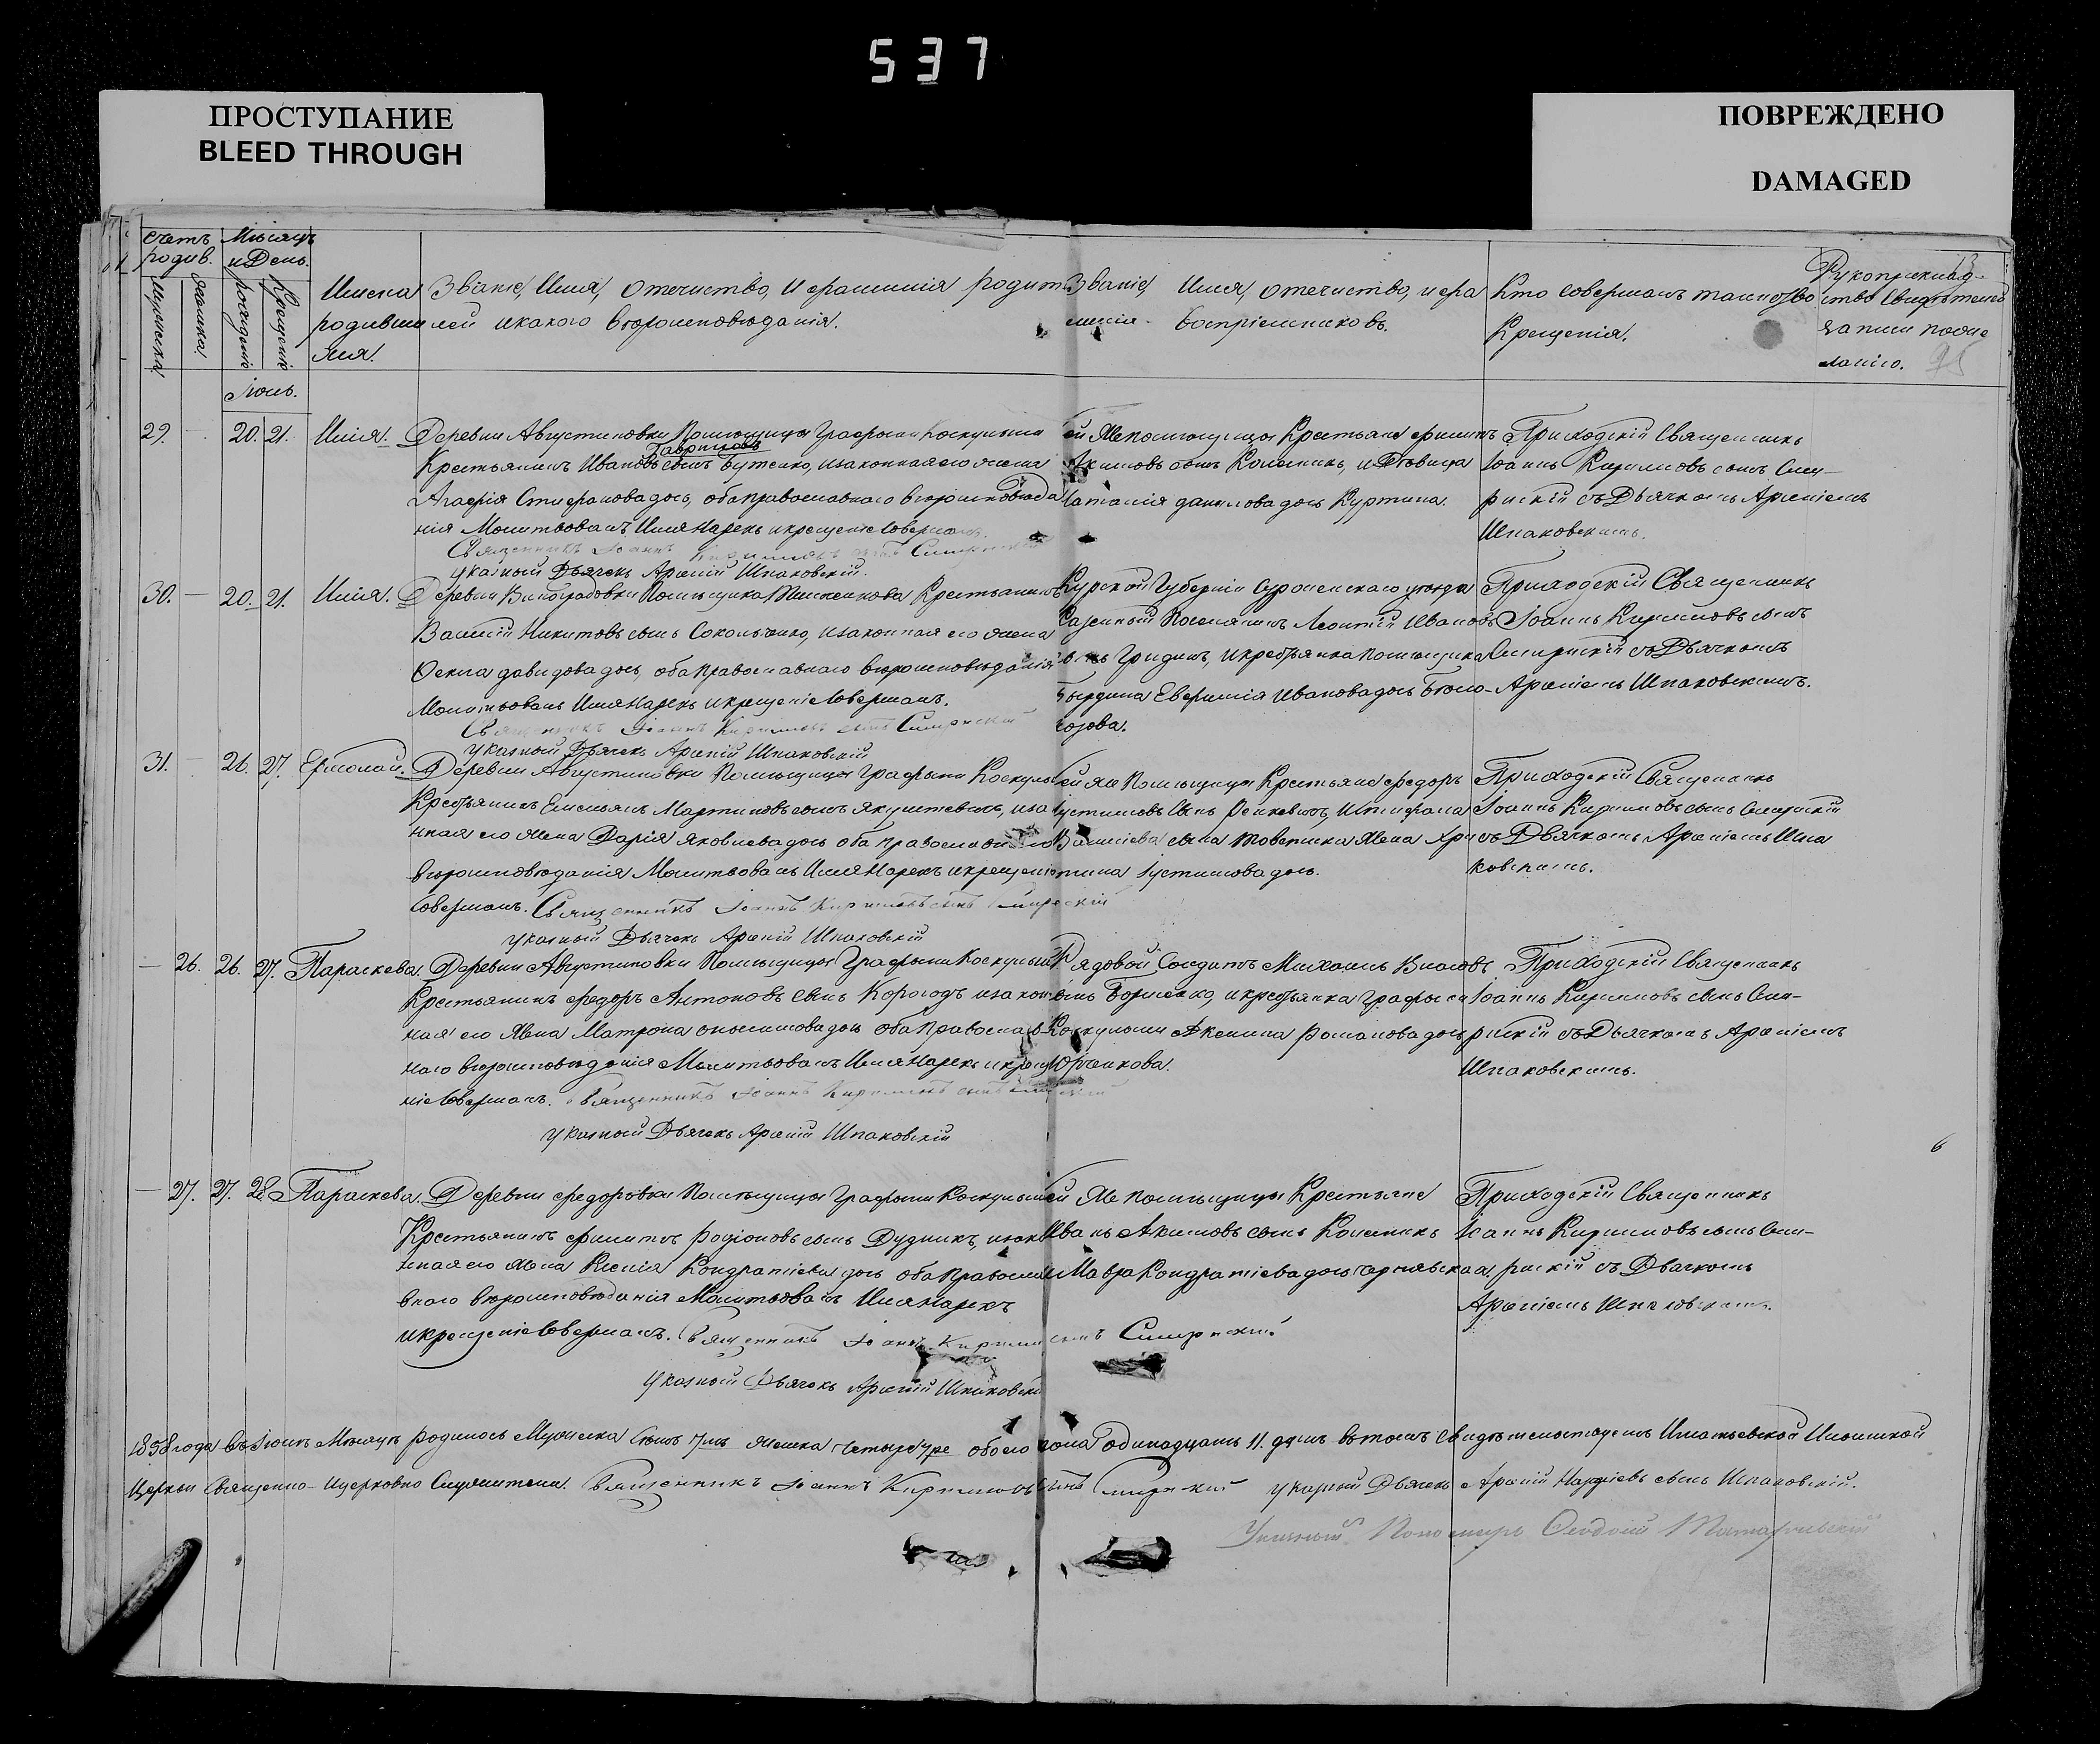 537
ПРОСТУПАНИЕ
BLEED THROUGH
ПОВРЕЖДЕНО
DAMAGED
Счетъ родив.
Мужеска
Женска
Мѣсяцъ и День.
рожденіе
Крещеніе
Имена
родивши
хся.
Званіе, Имя, Отечиство, И фамилія родит
лей икакого вѣроисповѣданія.
Званіе, Имя, Отечиство, ифа
милія Воспріемниковъ.
Кто Совершалъ таинство
Крещенія.
Рукоприклад
ство Свидѣтелей
записи пожела
нію.
Іюнь.
29. 20. 21. Илія. Деревни Августиновки Помѣщицы Графини Коскулыи
Гавриловъ
Крестьянинъ Ивановъ сынъ Бутенко, изаконная его жена
Агафія Стефанова дочь, оба православнаго вѣроисповѣда
нія Молитвовалъ Имя Нарекъ икрещеніе Совершалъ.
Священникъ Іоаннъ Кириловъ сынъ
Указный Дьячекъ Арсеній Шпаковскій.
ей же помѣщицы Крестьяне Филипъ
Акимовъ сынъ Колесникъ, и Дѣвица
Наталія данилова дочь Куртина.
Приходскій Священникъ
Іоаннъ Кириловъ сынъ Сми-
рискій съ Дьячкомъ Арсеніемъ
Шпаковскимъ.
30. 20. 21. Илія. Деревни Виноградовки Помѣщика Крестьянинъ
Василій Никитовъ сынъ Соколенко, изаконная его жена
давидова дочь, оба Православнаго вѣроисповѣданія
Молитвовалъ Имя Нарекъ икрещеніе Совершалъ.
Священникъ Іоаннъ Кириловъ сынъ
Указный Дьячекъ Арсеній Шпаковскій
Курской Губерніи уѣзда
Казенный Поселянинъ Леонтій Ивановъ
сынъ Гридинъ, икрестьянка помѣщика
Ивановадочь Бѣло-
гозова.
Приходскій Священникъ
Іоаннъ Кириловъ сынъ
съ Дьячкомъ
Арсеніемъ Шпаковскимъ.
31. 26. 27. Ермолай. Деревни Августиновки Помѣщицы Графини Коскулы
Крестьянинъ Емельянъ Мартиновъ сынъ Якушевичъ, изако
нная его жена Дарія Яковлева дочь оба православнаго
вѣроисповѣданія Молитвовалъ Имя Нарекъ икрещеніе
Совершалъ. Священникъ Іоаннъ Кириловъ сынъ
Указный Дьячекъ Арсеній Шпаковскій
ей же Помѣщицы Крестьяне Федоръ
Іустиновъ сынъ
Василіева сына жена Хри
стина Іустинова дочь.
Приходскій Священникъ
Іоаннъ Кириловъ сынъ
съ Дьячкомъ Арсеніемъ Шпа
ковскимъ.
26. 26. 27. Параскева. Деревни Августиновки Помѣщицы Графини Коскулыи
Крестьянинъ Федоръ Антоновъ сынъ Корогодъ изакон
ная его жена Матрона дочь оба православ
наго вѣроисповѣданія Молитвовалъ Имя Нарекъ икреще
ніе Совершалъ. Священникъ Іоаннъ Кириловъ сынъ
Указный Дьячекъ Арсеній Шпаковскій
Рядовой Солдатъ Михаилъ Власовъ
сынъ Борисенко, икрестьянка Графини
Коскулыи Аксинія Романова дочь
Юрченкова.
Приходскій Священникъ
Іоаннъ Кириловъ сынъ Сми-
рискій съ Дьячкомъ Арсеніемъ
Шпаковскимъ.
27. 27. 28. Параскева. Деревни Федоровки Помѣщицы Графини Коскулыи
Крестьянинъ Филипъ Родіоновъ сынъ Дудникъ, изако
нная его жена Ксенія Кондратіева дочь оба Православ
внаго вѣроисповѣданія Молитвовалъ Имя Нарекъ
икрещеніе Совершалъ. Священникъ Іоаннъ Кириловъ сынъ
Указный Дьячекъ Арсеній Шпаковскій
ей же помѣщицы Крестьяне
Иванъ Акимовъ сынъ Колесникъ
Мавра Кондратіева дочь
Приходскій Священникъ
Іоаннъ Кириловъ сынъ Сми-
рискій съ Дьячкомъ
Арсеніемъ Шпаковскимъ.
1858 года въ Іюнѣ Мѣсяцѣ родилось Мужеска Семь 7мь женска четыре обоего пола одинадцать 11. душъ вътомъ Свидѣтельствуемъ Ильинской
Церкви Священно-Ицерковно Служители. Священникъ Іоаннъ Кириловъ сынъ Указный Дьячекъ Арсеній сынъ Шпаковскій.
Указный Пономарь